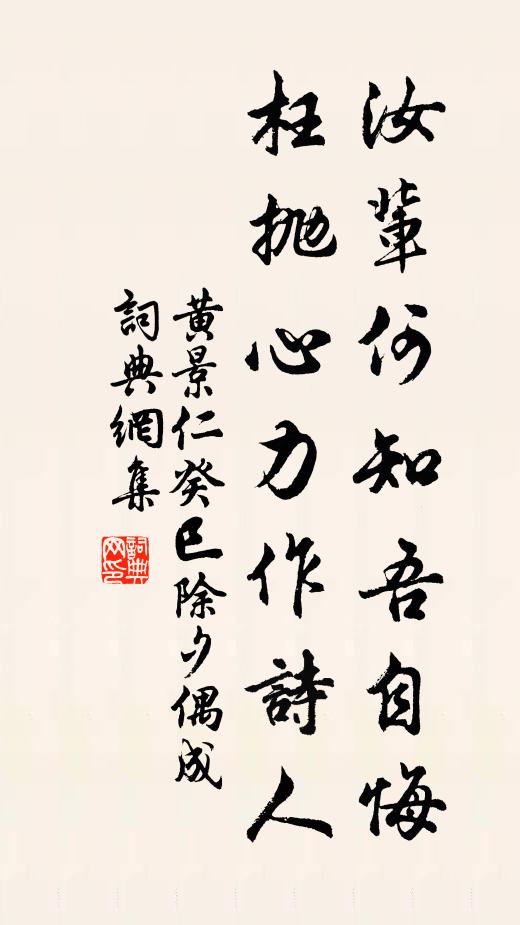 汝輩何知吾自悔
枉抛心力作詩人
黃景仁癸巳除夕偶成
詞典網集
詞典网印